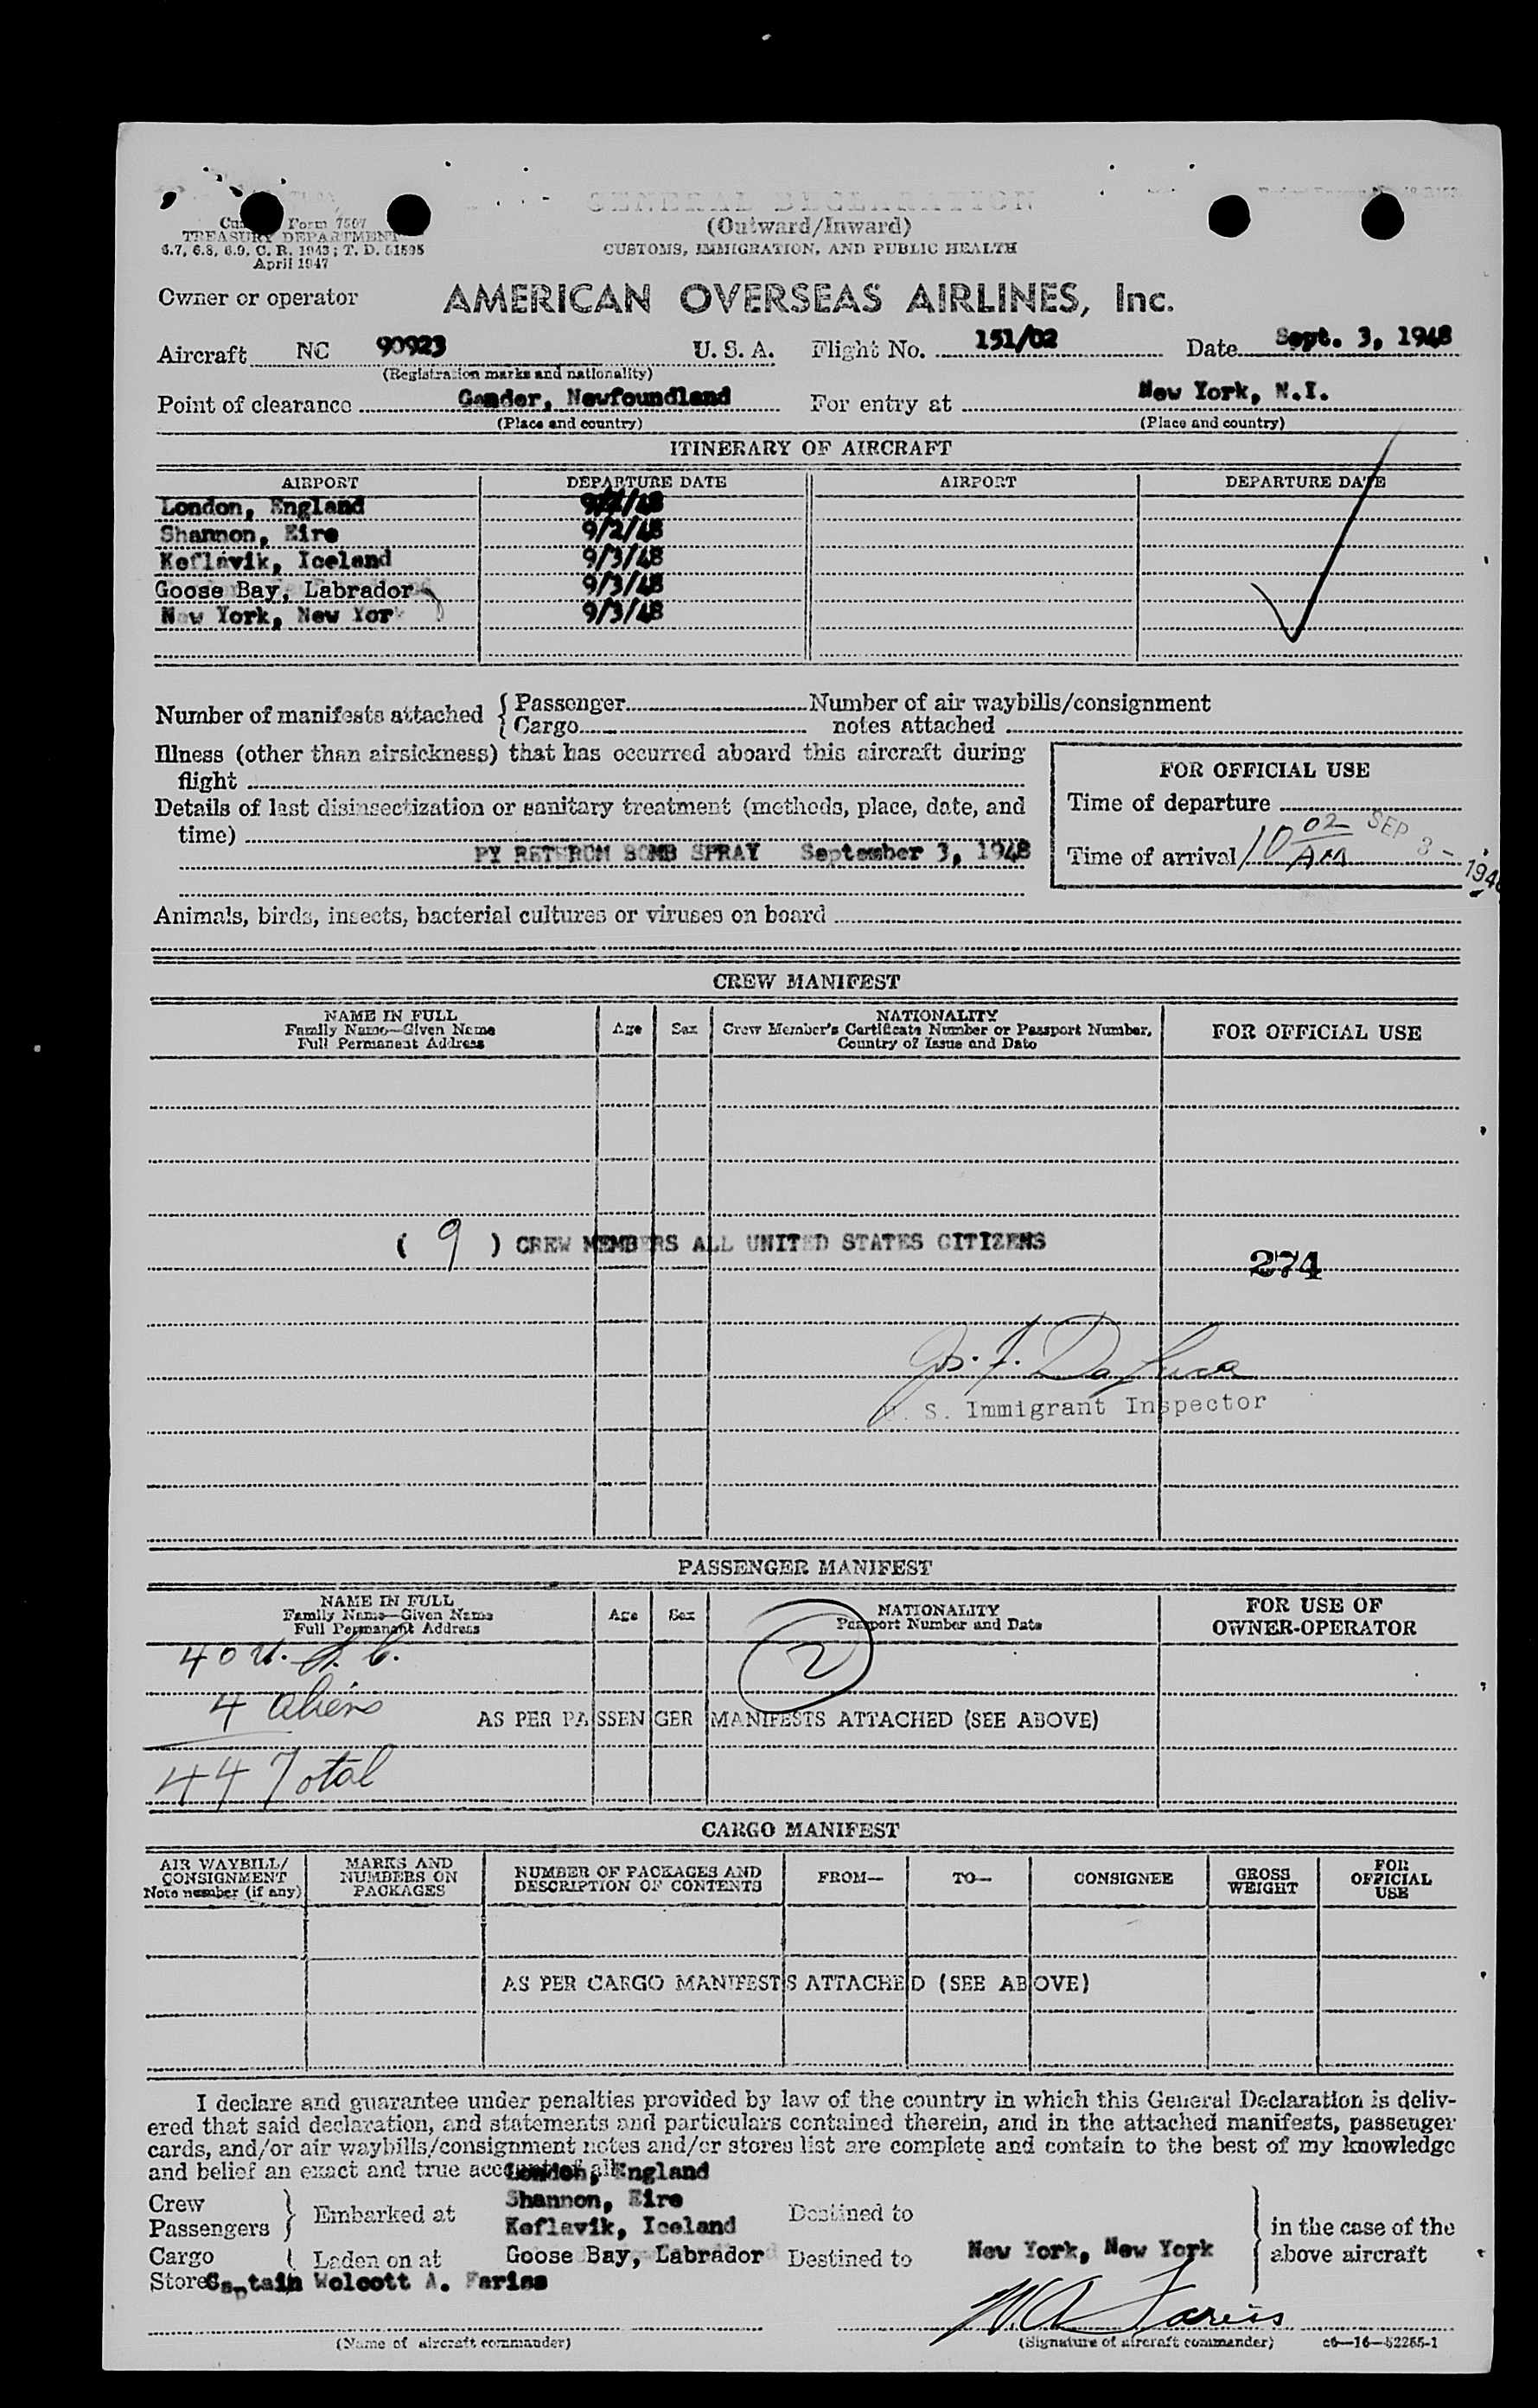 GENERAL DECLARATION
(Outward/Inward)
CUSTOMS, IMMIGRATION, AND PUBLIC HEALTH
Form 7507
TREASURY DEPARTMENT
6.7, 6.8, 6.9, C. R. 1943; T. D. 51595
April 1947
Owner or operator AMERICAN OVERSEAS AIRLINES, Inc.
Aircraft NC 90923 U. S. A. Flight No. 151/02 Date Sept. 3, 1948
(Registration marks and nationality)
Point of clearance Gander, Newfoundland For entry at New York, N.Y.
(Place and country) (Place and country)
ITINERARY OF AIRCRAFT
AIRPORT DEPARTURE DATE AIRPORT DEPARTURE DATE
London, England
Shannon, Eire 9/2/48
Keflavik, Iceland 9/3/48
Goose Bay, Labrador 9/3/48
New York, New York 9/3/48
Number of manifests attached { Passenger Number of air waybills/consignment
Cargo notes attached
Illness (other than airsickness) that has occurred aboard this aircraft during
flight
Details of last disinsectization or sanitary treatment (methods, place, date, and
time)
PY RETHRUM BOMB SPRAY September 3, 1948
FOR OFFICIAL USE
Time of departure
Time of arrival 10 02 AM SEP 3 - 194
Animals, birds, insects, bacterial cultures or viruses on board
CREW MANIFEST
NAME IN FULL
Family Name—Given Name
Full Permanent Address
Age Sex
NATIONALITY
Crew Member's Certificate Number or Passport Number,
Country of Issue and Date
FOR OFFICIAL USE
( 9 ) CREW MEMBERS ALL UNITED STATES CITIZENS
274
Jos. F. DaLuca
U. S. Immigrant Inspector
PASSENGER MANIFEST
NAME IN FULL
Family Name—Given Name
Full Permanent Address
Age Sex
NATIONALITY
Passport Number and Date
FOR USE OF
OWNER-OPERATOR
40 U. S. C.
2
4 aliens
AS PER PASSENGER MANIFESTS ATTACHED (SEE ABOVE)
44 Total
CARGO MANIFEST
AIR WAYBILL/
CONSIGNMENT
Note number (if any)
MARKS AND
NUMBERS ON
PACKAGES
NUMBER OF PACKAGES AND
DESCRIPTION OF CONTENTS
FROM— TO— CONSIGNEE
GROSS
WEIGHT
FOR
OFFICIAL
USE
AS PER CARGO MANIFESTS ATTACHED (SEE ABOVE)
I declare and guarantee under penalties provided by law of the country in which this General Declaration is deliv-
ered that said declaration, and statements and particulars contained therein, and in the attached manifests, passenger
cards, and/or air waybills/consignment notes and/or stores list are complete and contain to the best of my knowledge
and belief an exact and true account of all:
London, England
Crew Shannon, Eire
Passengers } Embarked at Keflavik, Iceland Destined to } in the case of the
Cargo { Laden on at Goose Bay, Labrador Destined to New York, New York above aircraft
Stores Captain Wolcott A. Fariss
W.A. Fariss
(Name of aircraft commander) (Signature of aircraft commander) c6—16—52255-1